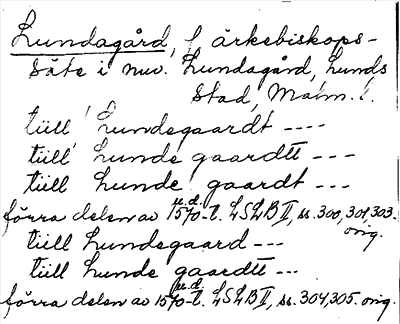 Lundagård, f ärkebiskops-
säte i nuv. Lundagård, Lunds
stad, Malm. l.
tiill Lundegaardt ----
tiill Lunde gaardtt ---
tiill Lunde gaardt ---
u.d.
förra delen av 1570-t. LSLB II, ss. 300, 301, 303.
orig.
tiill Lundegaard ---
tiill Lunde gaardtt ---
u.d.
förra delen av 1570-t. LSLB II, ss. 304, 305. orig.